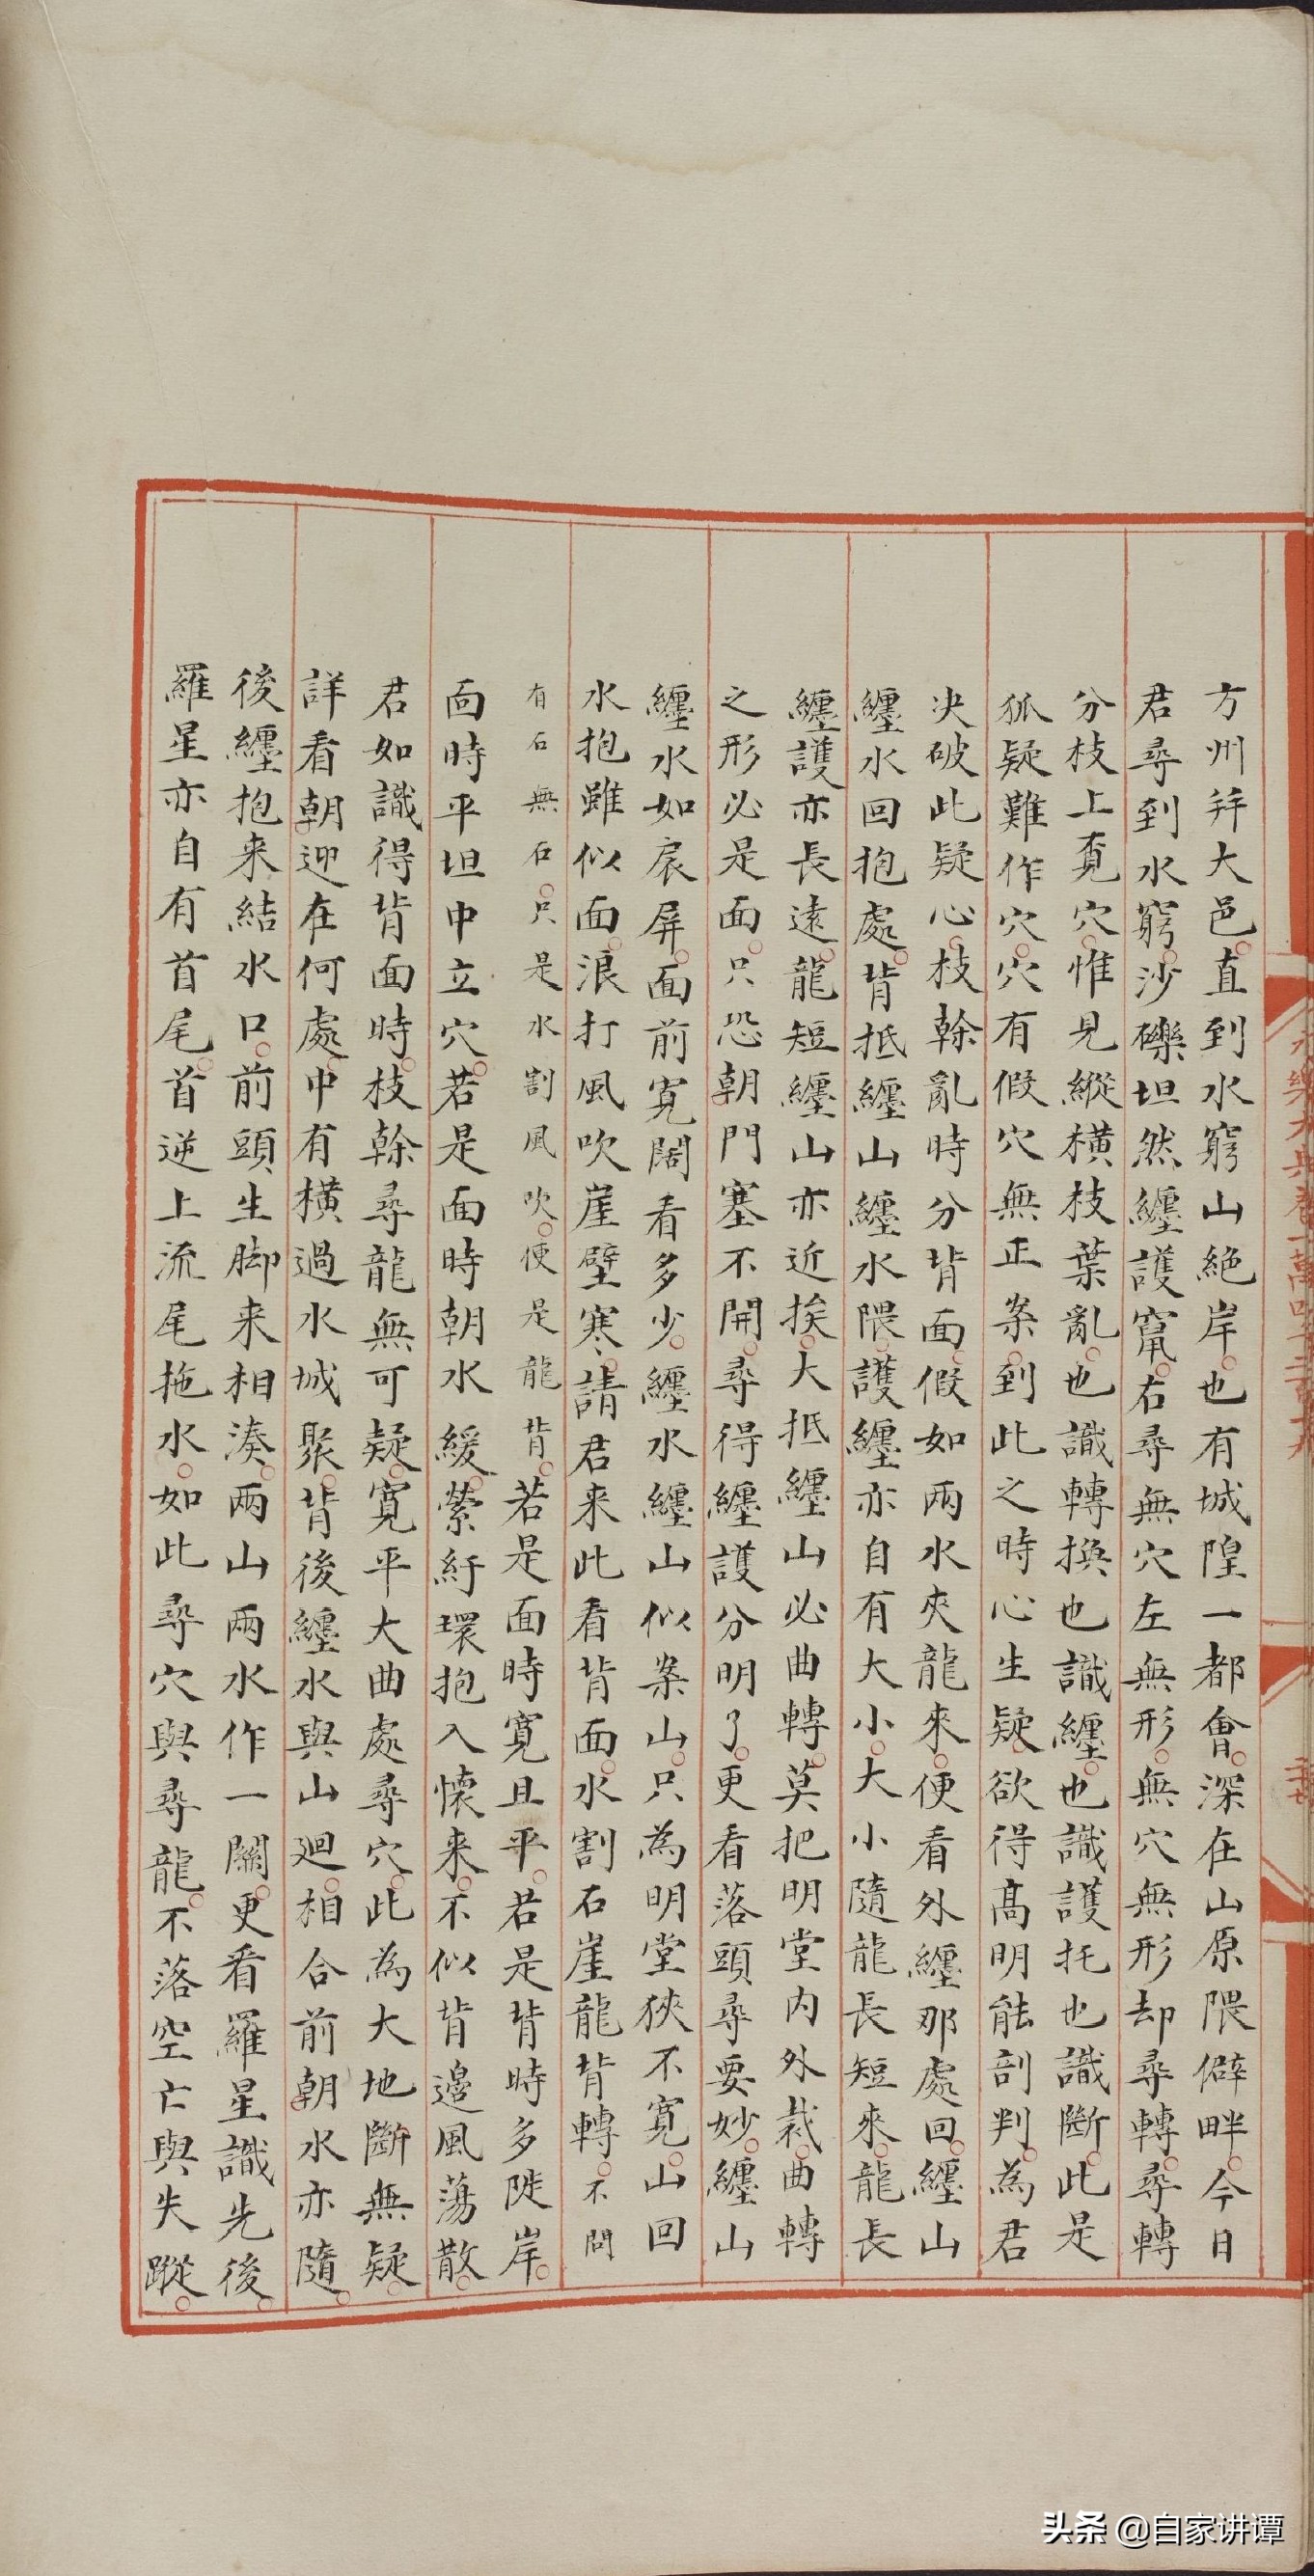 方州并大邑直到水窮山絶岸也有城隍一都會深在山原隈僻畔今日
君尋到水窮沙礫坦然纒護竄右尋無穴左無形無穴無形却尋轉尋轉
分枝上覔穴惟見縱横枝葉亂也識轉換也識纒也識護托也識斷此是
狐疑難作穴穴有假穴無正案到此之時心生疑欲得髙明能剖判為君
决破此疑心枝幹亂時分背面假如兩水夾龍來便看外纒那處回纒山
纒水回抱處背抵纒山纒水隈護纒亦自有大小大小隨龍長短來龍長
纒護亦長逺龍短纒山亦近挨大抵纒山必曲轉莫把明堂内外裁曲轉
之形必是面只恐朝門塞不開尋得纒護分明了更看落頭尋要妙纒山
纒水如扆屏面前寛闊看多少纒水纒山似案山只為明堂狹不寛山回
水抱雖似面浪打風吹崖壁寒請君来此看背面水割石崖龍背轉不問
有石無石只是水割風吹便是龍背若是面時寛且平若是背時多陡岸
面時平坦中立穴若是面時朝水緩縈紆環抱入懷来不似背邊風蕩散
君如識得背面時枝幹尋龍無可疑寛平大曲處尋穴此為大地斷無疑
詳看朝迎在何處中有横過水城聚背後纒水與山迴相合前朝水亦隨
後纒抱来結水口前頭生脚来相湊兩山兩水作一關更看羅星識先後
羅星亦自有首尾首逆上流尾拖水如此尋穴與尋龍不落空亡與失蹤
頭条 @自家讲谭